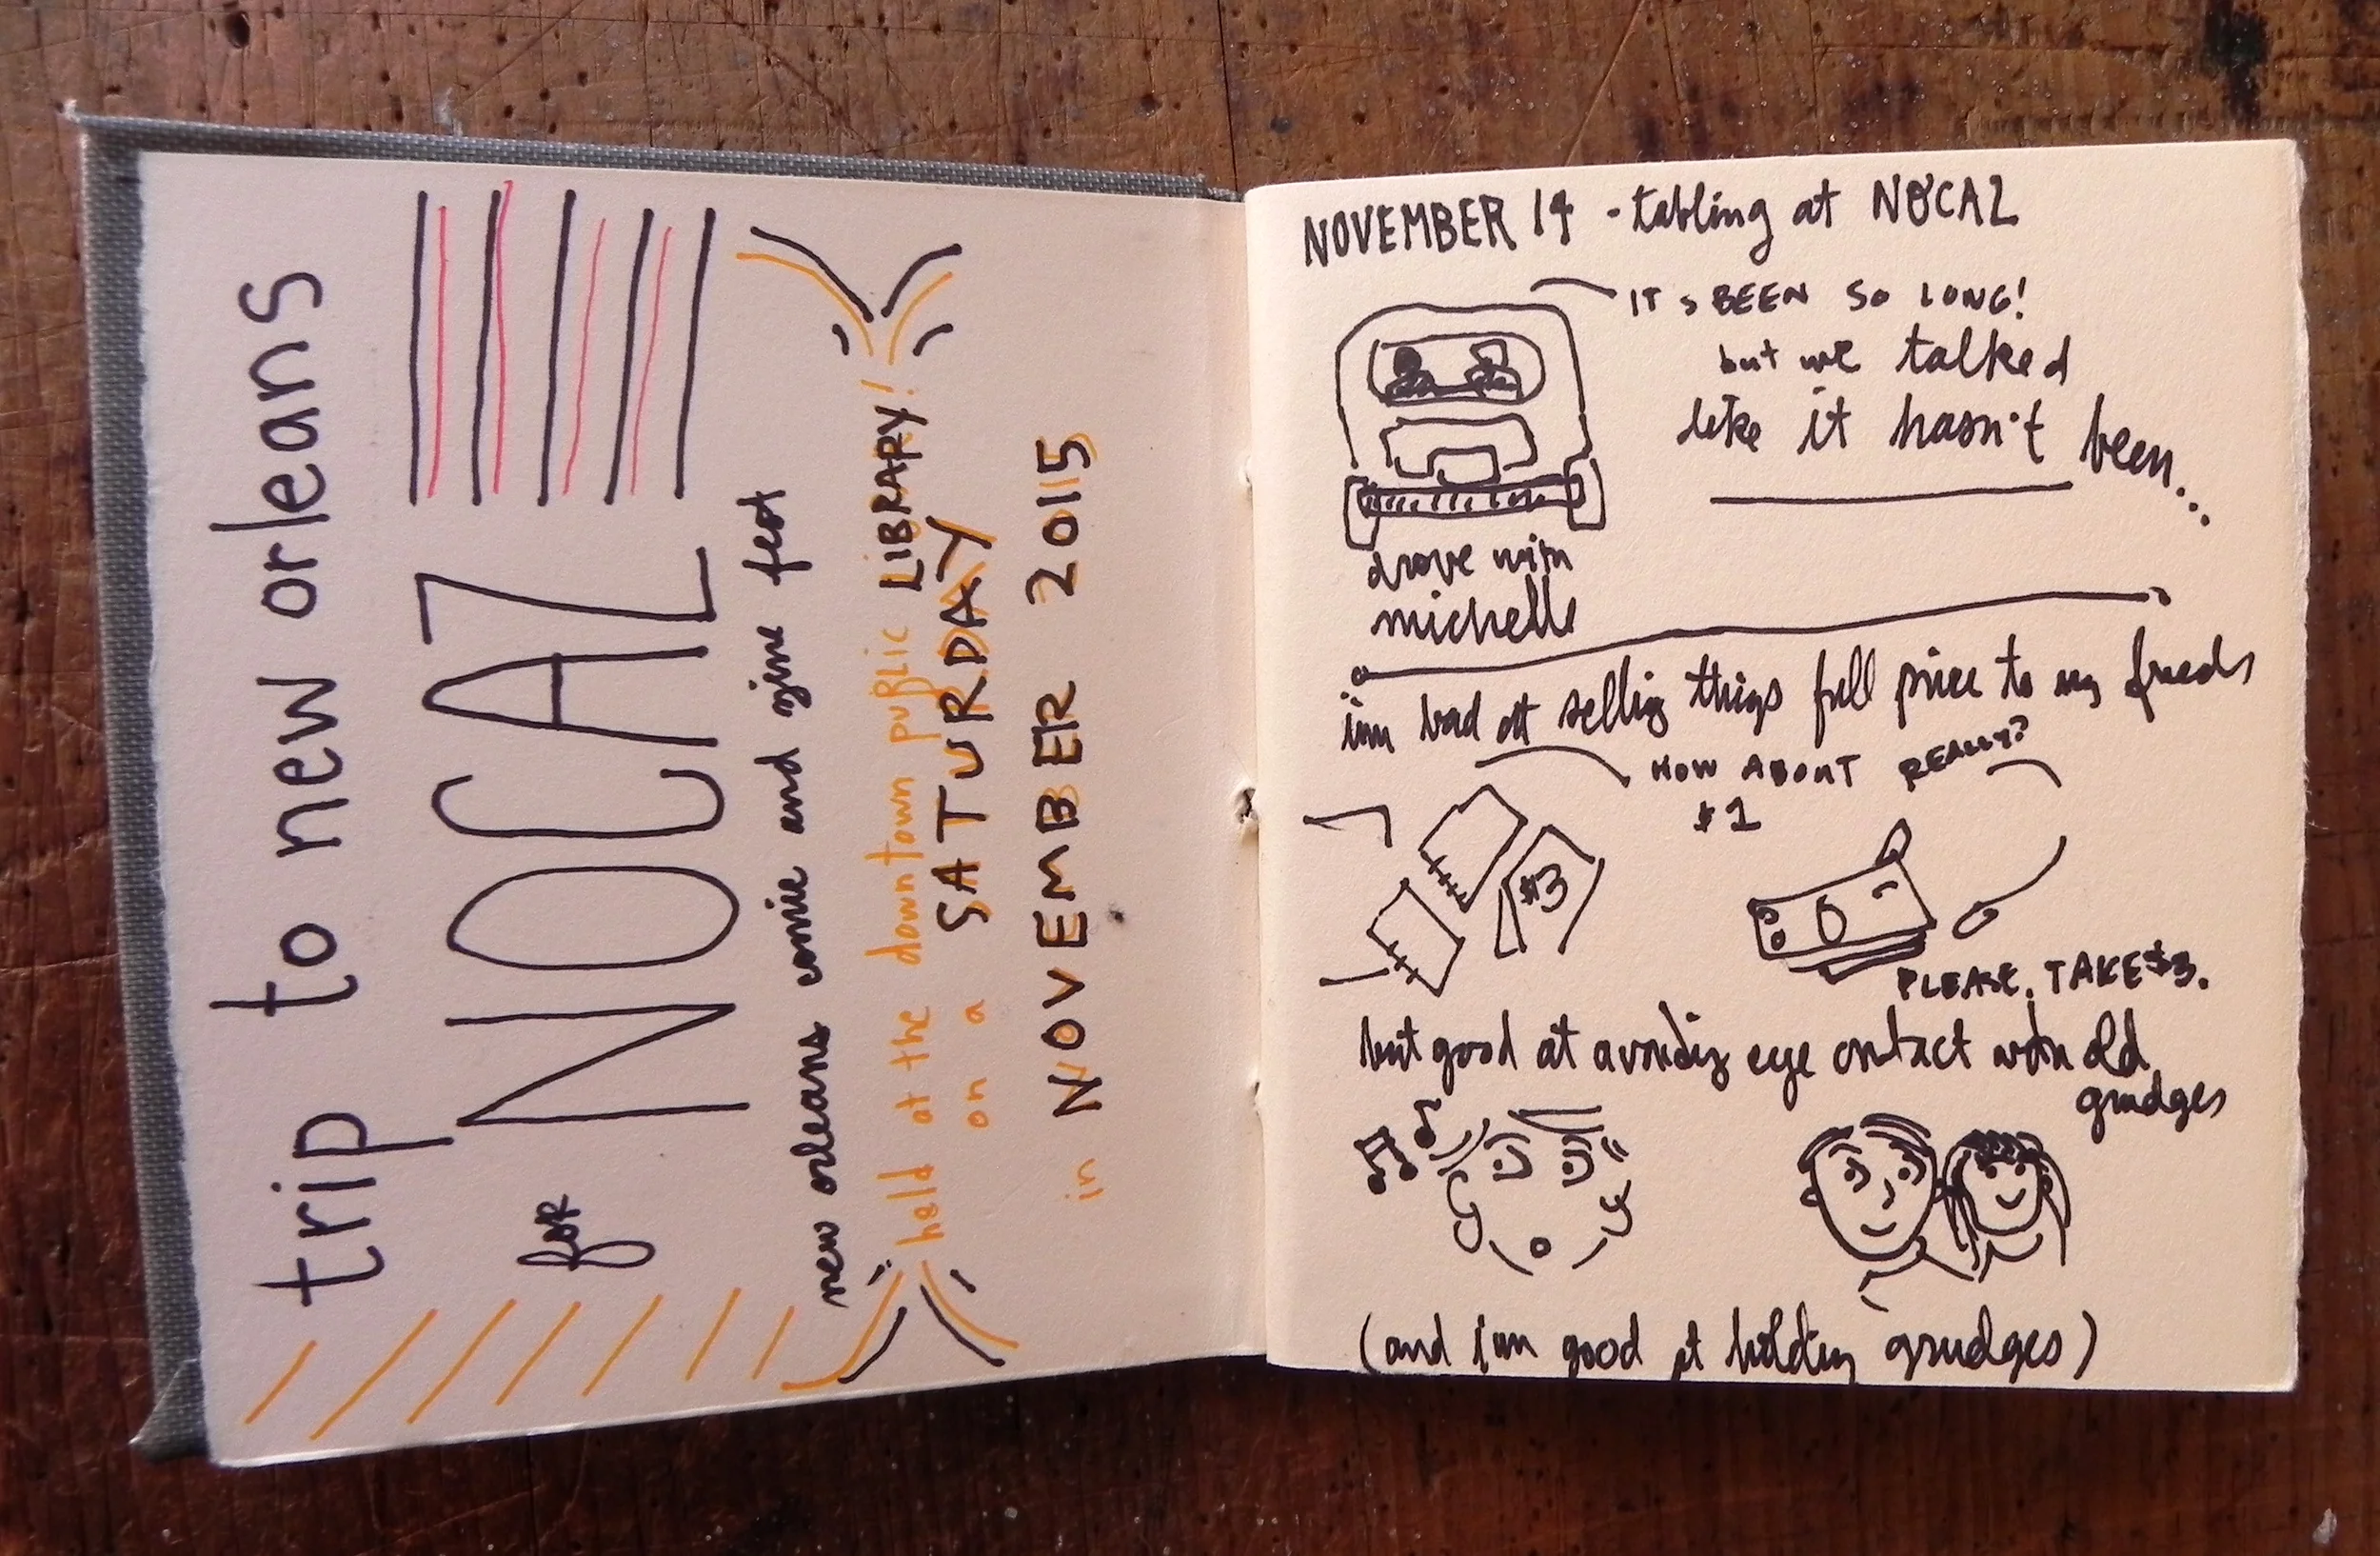 trip to new orleans
for NOCAZ
new orleans comic and zine fest
held at the downtown public LIBRARY!
on a SATURDAY
in NOVEMBER 2015
NOVEMBER 14 - tabling at NOCAZ
IT'S BEEN SO LONG!
but we talked
like it hasn't been...
drove with
michelle
im bad at selling things full price to my frieds
HOW ABOUT
$1
REALLY?
$3
PLEASE. TAKE $3.
but good at avoiding eye contact with old
grudges
(and i am good at holding grudges)